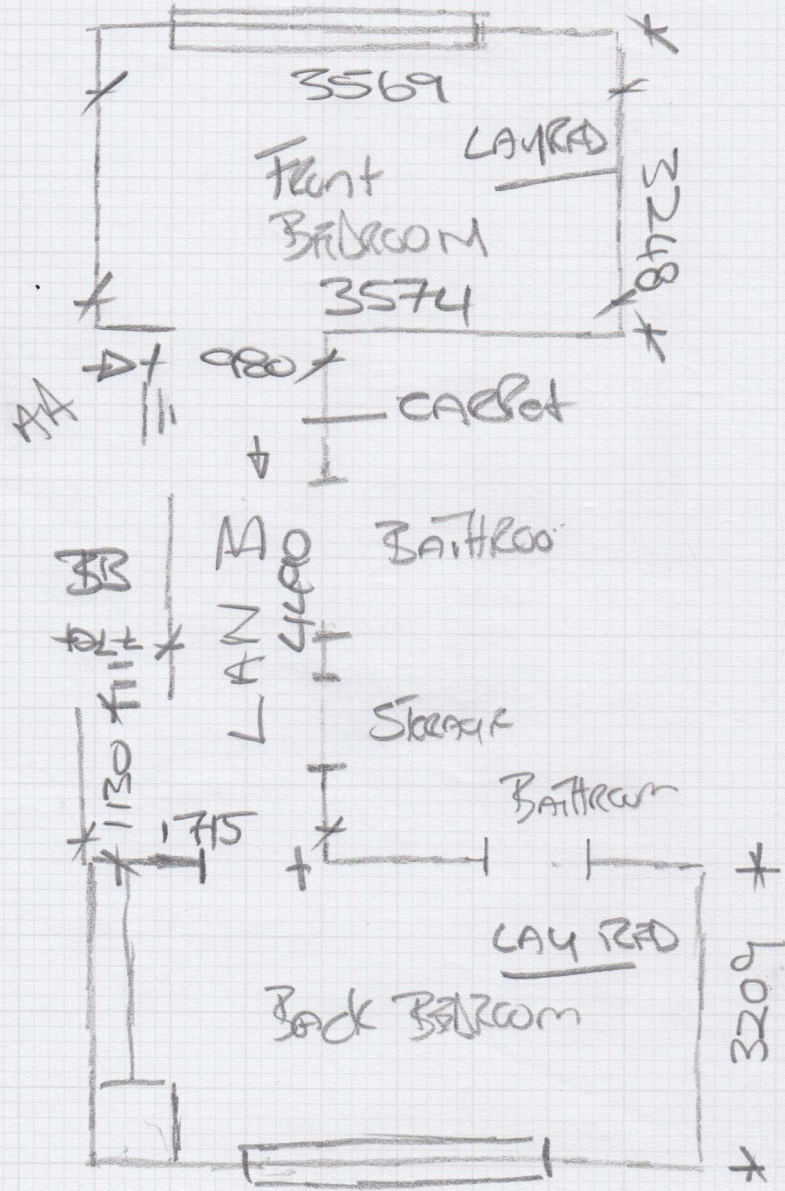 3569
LAYRED
Front
BEDROOM
3248
3574
AA
980
CARPet
BATHROO
BB
LAN D
4490
1130
Storage
BATHroom
1715
LAY RED
Back BEDROOM
3209